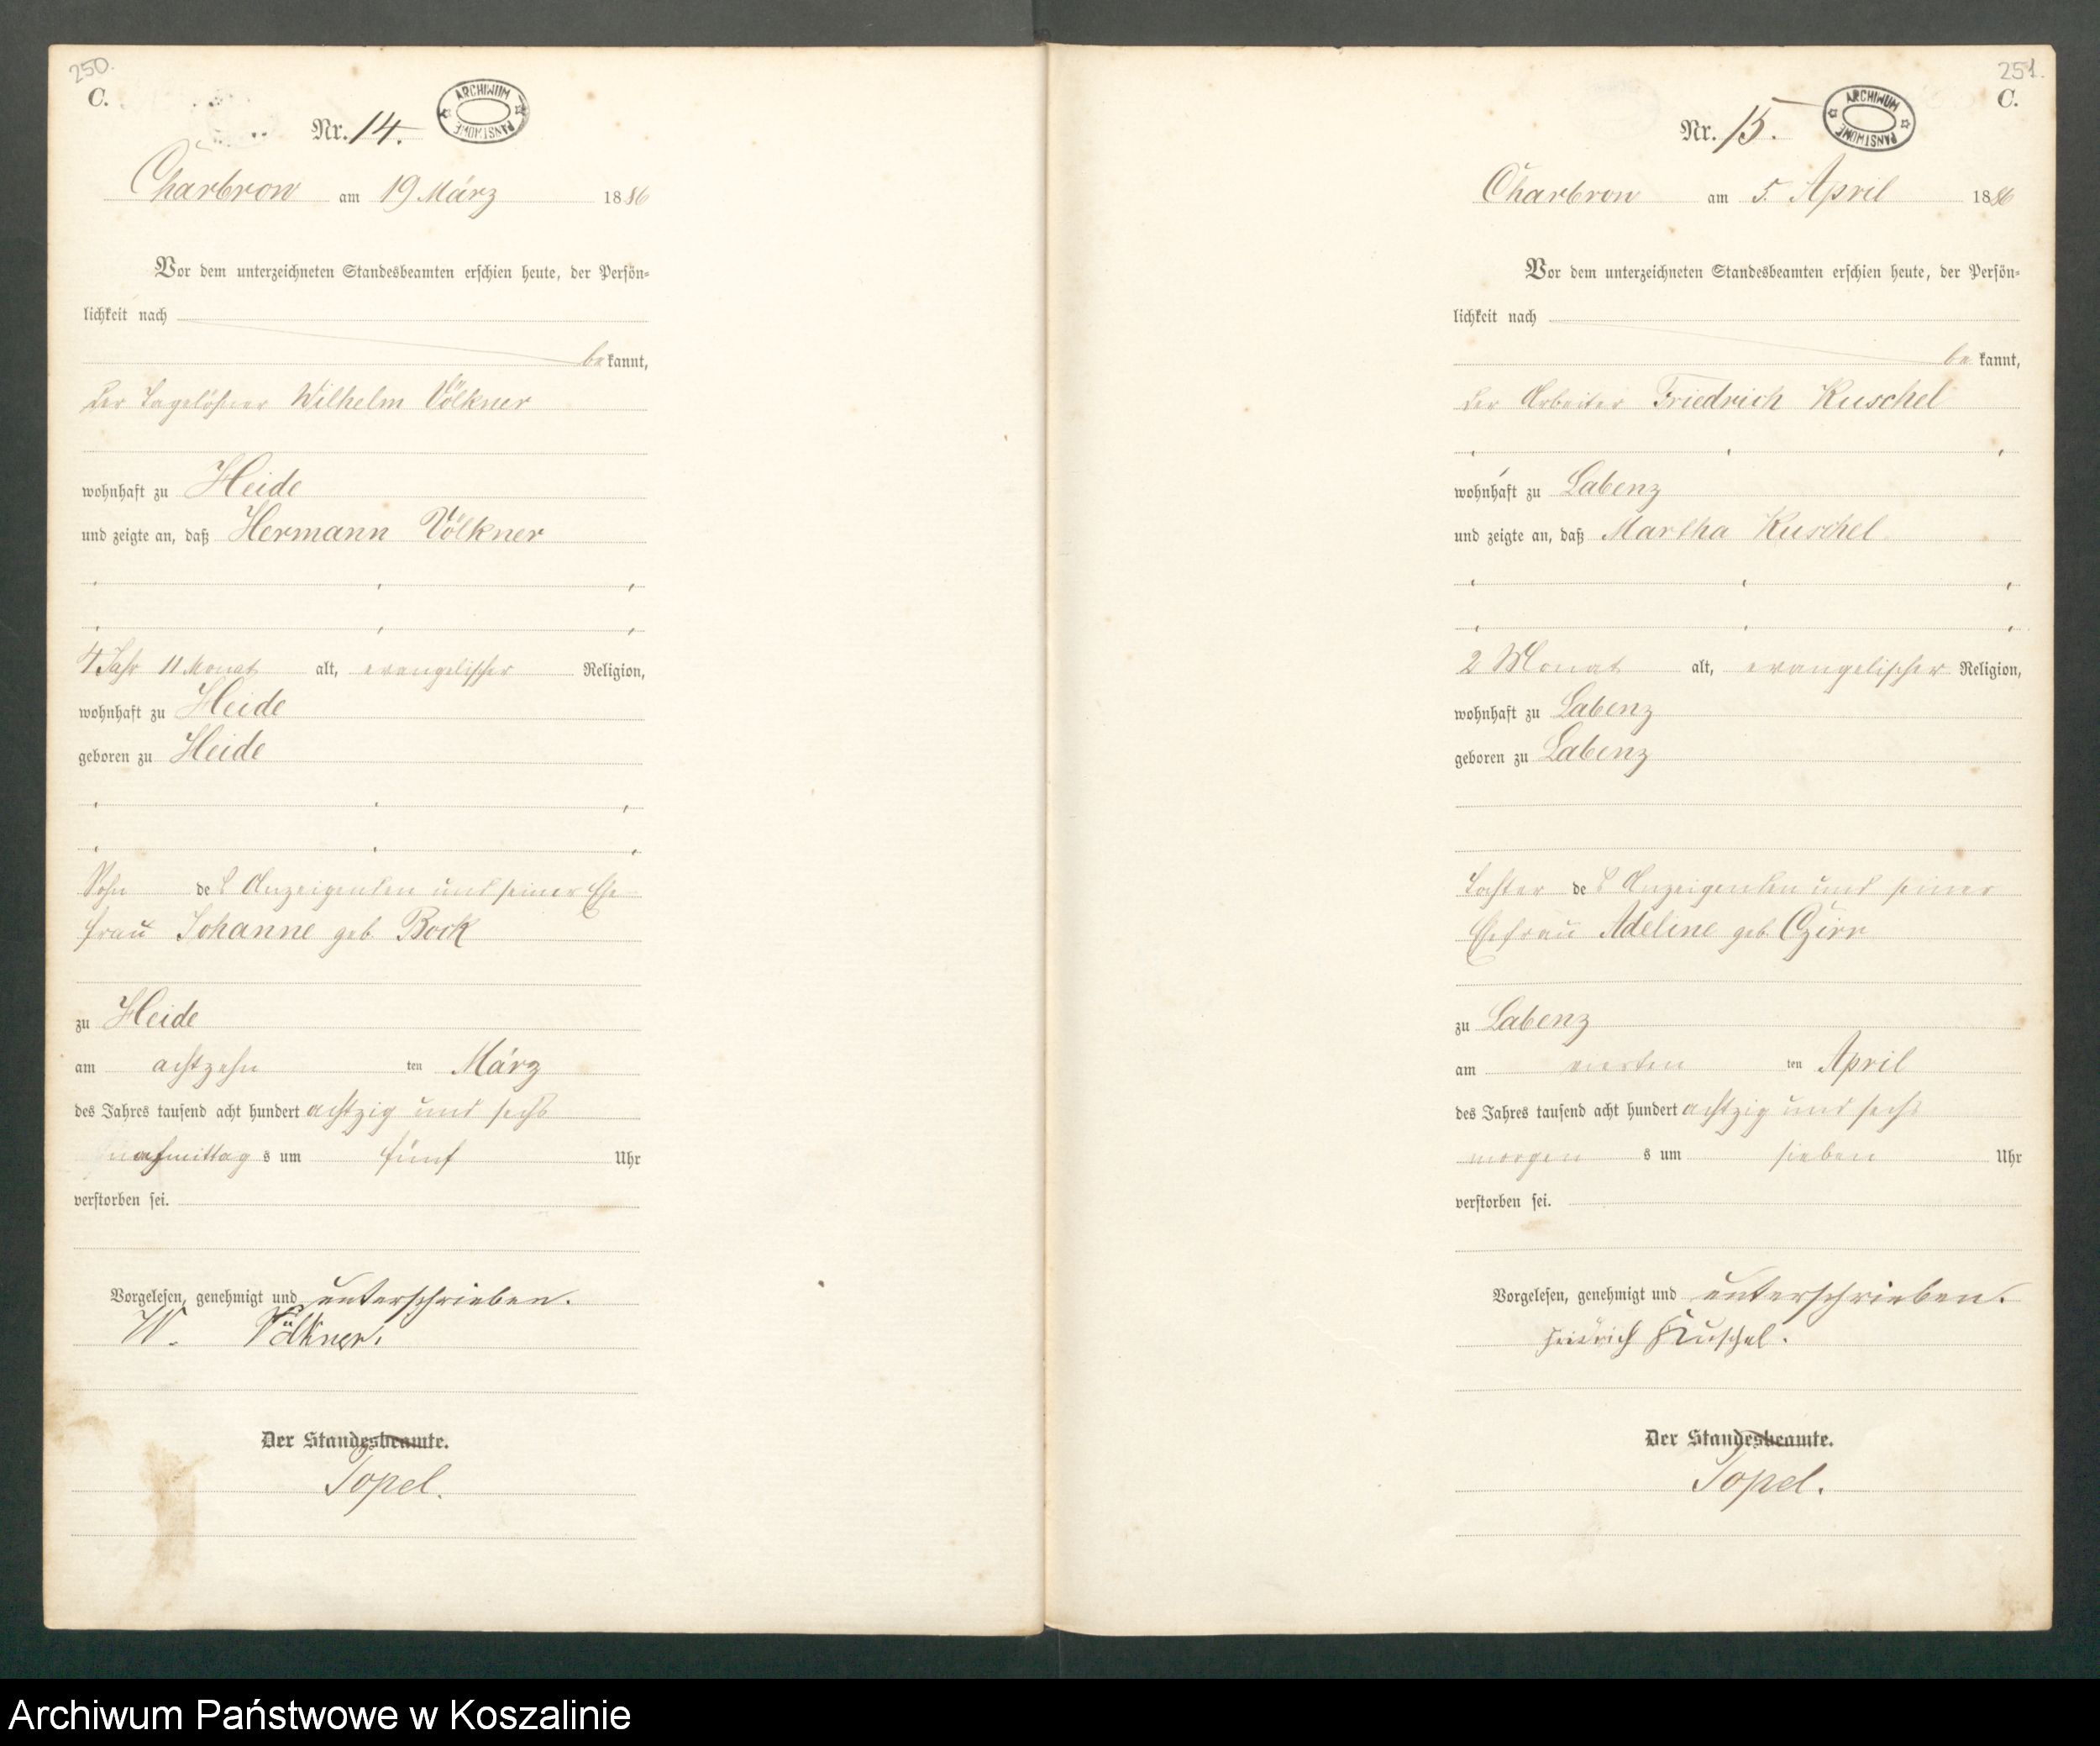 250.
C.
Nr. 14.
ARCHIWUM PAŃSTWOWE
Charbrow am 19 März 1886
Vor dem unterzeichneten Standesbeamten erschien heute, der Persön-
lichkeit nach
bekannt,
der Tagelöhner Wilhelm Völkner
wohnhaft zu Heide
und zeigte an, daß Hermann Völkner
4 Jahr 11 Monat alt, evangelischer Religion,
wohnhaft zu Heide
geboren zu Heide
Sohn des Anzeigenden und seiner Ehe
frau Johanne geb. Bock
zu Heide
am achtzehn ten März
des Jahres tausend acht hundert achtzig und sechs
nachmittag s um fünf Uhr
verstorben sei.
Vorgelesen, genehmigt und unterschrieben.
W. Völkner.
Der Standesbeamte.
Topel.
251.
C.
Nr. 15.
ARCHIWUM PAŃSTWOWE
Charbrow am 5. April 1886
Vor dem unterzeichneten Standesbeamten erschien heute, der Persön-
lichkeit nach
bekannt,
der Arbeiter Friedrich Kuschel
wohnhaft zu Labenz
und zeigte an, daß Martha Kuschel
2 Monat alt, evangelischer Religion,
wohnhaft zu Labenz
geboren zu Labenz
Tochter des Anzeigenden und seiner
Ehefrau Adeline geb. Czirr
zu Labenz
am vierten ten April
des Jahres tausend acht hundert achtzig und sechs
morgen s um sieben Uhr
verstorben sei.
Vorgelesen, genehmigt und unterschrieben.
Friedrich Kuschel.
Der Standesbeamte.
Topel.
Archiwum Państwowe w Koszalinie